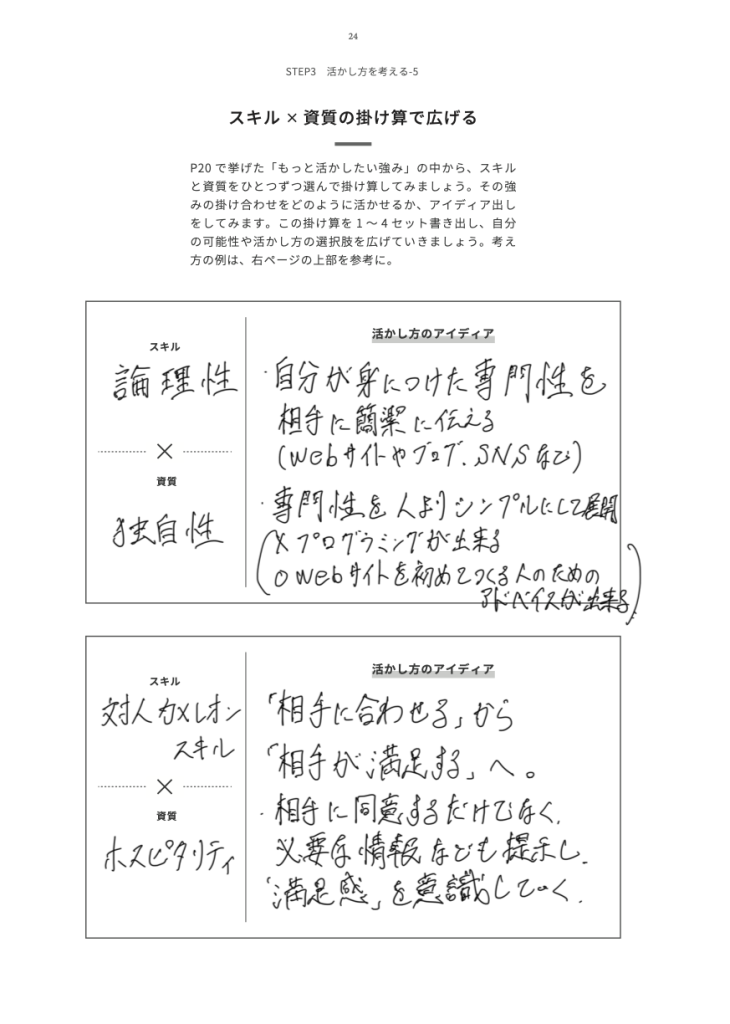 24
STEP3 活かし方を考える-5
スキル × 資質の掛け算で広げる
P20 で挙げた「もっと活かしたい強み」の中から、スキル
と資質をひとつずつ選んで掛け算してみましょう。その強
みの掛け合わせをどのように活かせるか、アイディア出し
をしてみます。この掛け算を１〜４セット書き出し、自分
の可能性や活かし方の選択肢を広げていきましょう。考え
方の例は、右ページの上部を参考に。
スキル
論理性
×
資質
独自性
活かし方のアイディア
・自分が身につけた専門性を
相手に簡潔に伝える
(Webサイトやブログ、SNSなど)
・専門性を人よりシンプルにして展開
(× プログラミングが出来る
○ Webサイトを初めてつくる人のための
アドバイスが出来る)
スキル
対人カメレオン
スキル
×
資質
ホスピタリティ
活かし方のアイディア
「相手に合わせる」から
「相手が満足する」へ。
・相手に同意するだけでなく、
必要な情報なども提示し、
「満足感」を意識していく。